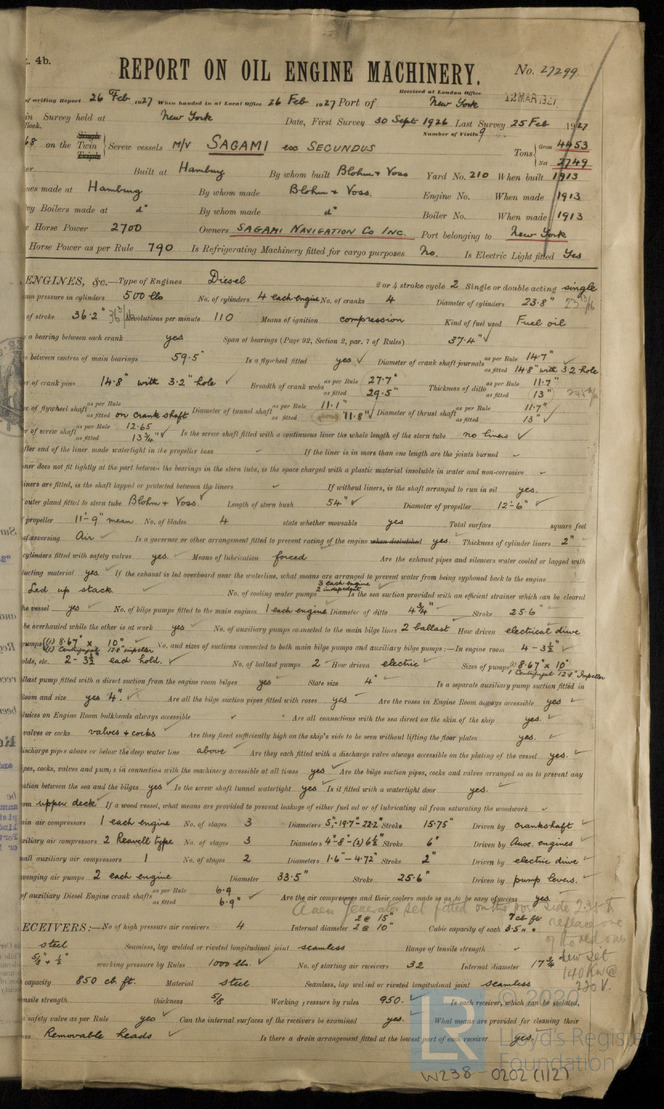 4b.
REPORT ON OIL ENGINE MACHINERY. No. 27299
Received at London Office 12 MAR 1927
of writing Report 26 Feb 1927 When handed in at Local Office 26 Feb 1927 Port of New York
in Survey held at New York Date, First Survey 30 Sept 1926 Last Survey 25 Feb 1927
Number of Visits 9
on the Single Twin Triple Screw vessels M/V SAGAMI exo SECUNDUS Tons Gross 4453 Net 2749
Built at Hamburg By whom built Blohm & Voss Yard No. 210 When built 1913
made at Hamburg By whom made Blohm & Voss. Engine No. When made 1913
Boilers made at d° By whom made d° Boiler No. When made 1913
Horse Power 2700 Owners SAGAMI NAVIGATION CO INC. Port belonging to New York
Horse Power as per Rule 790 Is Refrigerating Machinery fitted for cargo purposes No. Is Electric Light fitted Yes
ENGINES, &c.—Type of Engines Diesel 2 or 4 stroke cycle 2 Single or double acting single
pressure in cylinders 500 lbs No. of cylinders 4 each engine No. of cranks 4 Diameter of cylinders 23.8"
of stroke 36.2" Revolutions per minute 110 Means of ignition compression Kind of fuel used Fuel oil
a bearing between each crank yes Span of bearings (Page 92, Section 2, par. 7 of Rules) 37.4"
between centres of main bearings 59.5" Is a flywheel fitted yes Diameter of crank shaft journals as per Rule 14.7" as fitted 14.8" with 3.2 hole
of crank pins 14.8" with 3.2" hole Breadth of crank webs as per Rule 27.7" as fitted 29.5" Thickness of ditto as per Rule 11.7" as fitted 13"
of flywheel shaft as per Rule as fitted on crank shaft Diameter of tunnel shaft as per Rule 11.1" as fitted 11.8" Diameter of thrust shaft as per Rule 11.7" as fitted 13"
of screw shaft as per Rule 12.65 as fitted 13¾" Is the screw shaft fitted with a continuous liner the whole length of the stern tube no liners
after end of the liner made watertight in the propeller boss If the liner is in more than one length are the joints burned
liner does not fit tightly at the part between the bearings in the stern tube, is the space charged with a plastic material insoluble in water and non-corrosive
liners are fitted, is the shaft lapped or protected between the liners If without liners, is the shaft arranged to run in oil yes.
outer gland fitted to stern tube Blohm & Voss. Length of stern bush 54" Diameter of propeller 12'-6"
propeller 11'-9" mean. No. of blades 4 state whether moveable yes Total surface square feet
of reversing Air Is a governor or other arrangement fitted to prevent racing of the engine when declutched yes. Thickness of cylinder liners 2"
cylinders fitted with safety valves yes. Means of lubrication forced Are the exhaust pipes and silencers water cooled or lagged with
material yes If the exhaust is led overboard near the waterline, what means are arranged to prevent water from being syphoned back to the engine
Led up stack No. of cooling water pumps 3 each engine 2 independent Is the sea suction provided with an efficient strainer which can be cleared
the vessel yes No. of bilge pumps fitted to the main engines 1 each engine Diameter of ditto 4¾" Stroke 25.6"
be overhauled while the other is at work yes No. of auxiliary pumps connected to the main bilge lines 2 ballast How driven electrical drive
pumps (1) 8.67" x 10" (1) Centrifugal 12.8" impeller No. and sizes of suctions connected to both main bilge pumps and auxiliary bilge pumps:—In engine room 4 - 3½"
holds, etc. 2 - 3½ each hold. No. of ballast pumps 2 How driven electric Sizes of pumps (1) 8.67" x 10" 1 Centrifugal 12.8" Impeller
ballast pump fitted with a direct suction from the engine room bilges yes State size 4" Is a separate auxiliary pump suction fitted in
Room and size yes 4". Are all the bilge suction pipes fitted with roses yes Are the roses in Engine Room always accessible yes
sluices on Engine Room bulkheads always accessible Are all connections with the sea direct on the skin of the ship yes.
valves or cocks valves & cocks Are they fixed sufficiently high on the ship's side to be seen without lifting the floor plates yes.
discharge pipes above or below the deep water line above Are they each fitted with a discharge valve always accessible on the plating of the vessel yes.
pipes, cocks, valves and pumps in connection with the machinery accessible at all times yes Are the bilge suction pipes, cocks and valves arranged so as to prevent any
between the sea and the bilges yes Is the screw shaft tunnel watertight yes Is it fitted with a watertight door yes.
upper deck If a wood vessel, what means are provided to prevent leakage of either fuel oil or of lubricating oil from saturating the woodwork
main air compressors 1 each engine No. of stages 3 Diameters 5"-19.7"-22.2" Stroke 15.75" Driven by crankshaft
auxiliary air compressors 2 Reavell type No. of stages 3 Diameters 4"-8"-(2) 6½ Stroke 6" Driven by Aux. engines
small auxiliary air compressors 1 No. of stages 2 Diameters 1.6"-4.72" Stroke 2" Driven by electric drive
scavenging air pumps 2 each engine Diameter 33.5" Stroke 25.6" Driven by pump levers.
of auxiliary Diesel Engine crank shafts as per Rule 6.9 as fitted 6.9" Are the air compressors and their coolers made so as to be easy of access yes
RECEIVERS:—No. of high pressure air receivers 4 Internal diameter 2 @ 15" 2 @ 10" Cubic capacity of each
steel Seamless, lap welded or riveted longitudinal joint seamless Range of tensile strength
working pressure by Rules 1000 lbs No. of starting air receivers 32 Internal diameter 17¾
capacity 850 cb. ft. Material steel Seamless, lap welded or riveted longitudinal joint seamless
tensile strength. thickness 5/8 Working pressure by rules 950. Is each receiver, which can be isolated,
a safety valve as per Rule yes Can the internal surfaces of the receivers be examined yes. What means are provided for cleaning their
Removable heads Is there a drain arrangement fitted at the lowest part of each receiver yes.
new set
140 KW @
220 V.
© 2020
LR
Lloyd's Register
Foundation
W238-0202 (1/2)